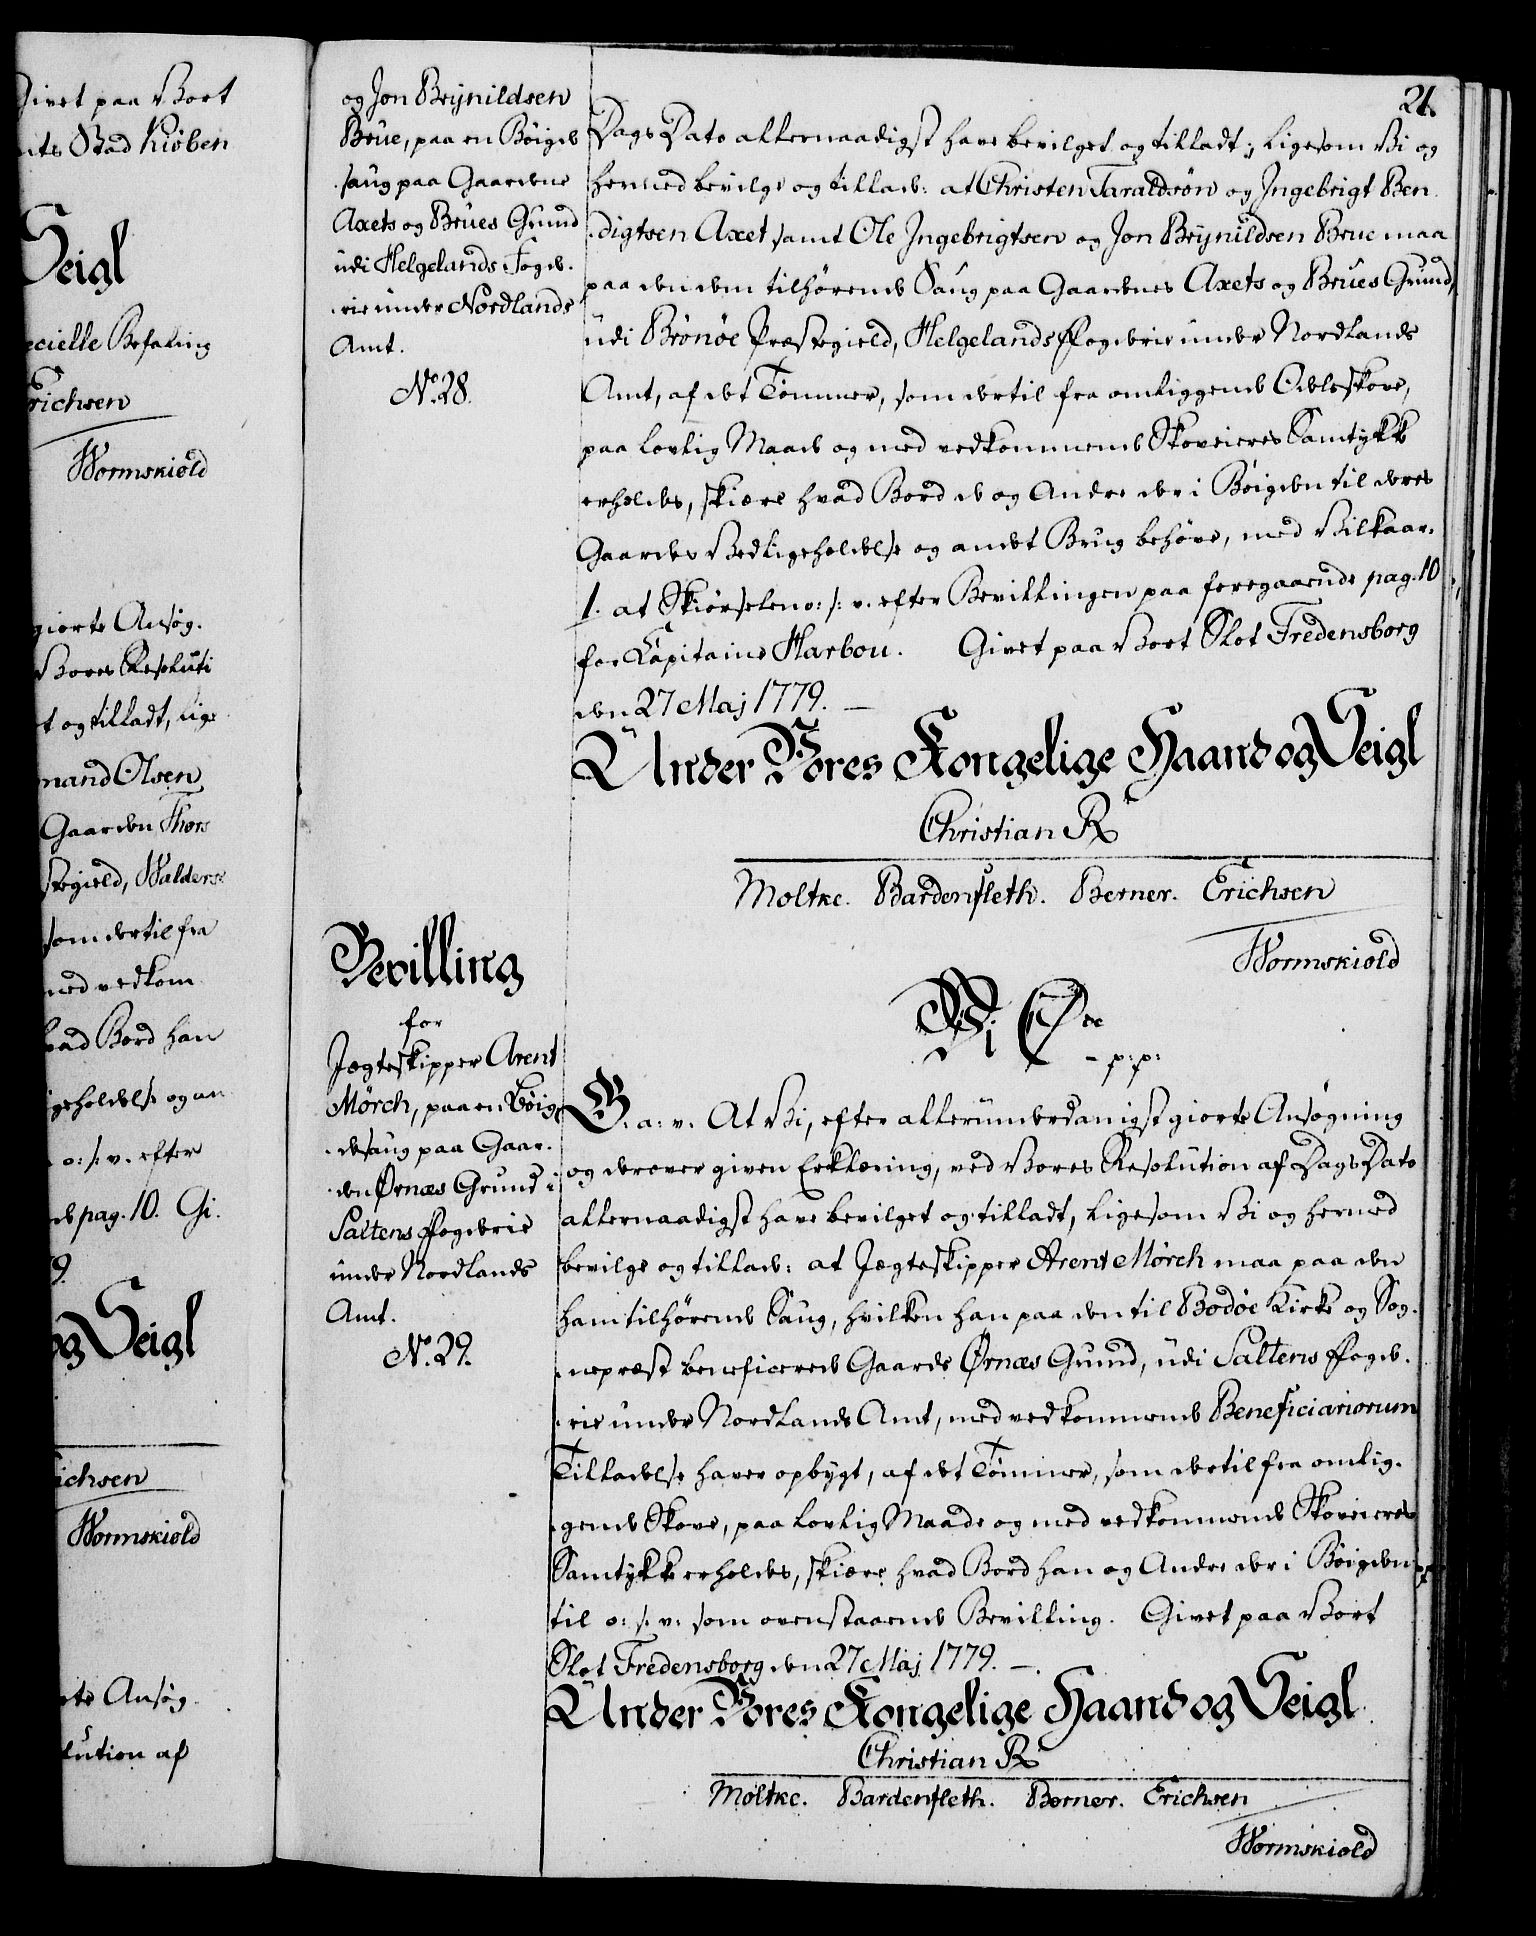 Givet paa Vort
Stad Kiöben
Seigl
ecielle Befaling
Erichsen
Wormskiold
giorte Ansøg.
Vores Resoluti
t og tilladt, lige
mand Olsen
Gaarden Thors
stegield, Walders
som dertil fra
med vedkom
hvad Bord han
igeholdelse og an
o: s: v. efter
pag. 10. Gi.
9.
og Seigl
Erichsen
Wormskiold
rte Ansøg.
lution af
og Jon Brynildsen
Brue, paa en Böigde
saug paa Gaardene
Axets og Brues Grund
udi Helgelands Fogd.
rie under Nordlands
Amt.
No. 28.
21.
Dags Dato allernaadigst have bevilget og tilladt; ligesom Vi og
hermed bevilge og tillade: at Christen Taraldsön og Ingebrigt Ben
digtsen Axet samt Ole Ingebrigtsen og Jon Brynildsen Brue maa
paa den dem tilhørende Saug paa Gaardenes Axets og Brues Grund,
udi Brönöe Præstegield, Helgelands Fogderie under Nordlands
Amt, af det Tömmer, som dertil fra omliggende Odelsskove,
paa lovlig Maade og med vedkommende Skoveieres Samtykke
erholdes, skiære hvad Bord de og Andre der i Böigden til deres
Gaardes Vedligeholdelse og andet Brug behöve, med Vilkaar.
1. at Skiørselen o: s: v. efter Bevillingen paa foregaaende pag. 10
for Capitaine Harbou. Givet paa Vort Slot Fredensborg
den 27 Maj 1779. —
Under Vores Kongelige Haand og Seigl
Christian R
Moltke. Bardenfleth. Berner. Erichsen
Wormskiold
Bevilling
for
Jægteskipper Arent
Mörch, paa en Böig
desaug paa Gaar.
den Ørnæs Grund i
Saltens Fogderie
under Nordlands
Amt.
No. 29.
Vi C &c
- p: p:
G. a: v. At Vi, efter allerunderdanigst giorte Ansøgning
og derover given Erklæring, ved Vores Resolution af Dags Dato
allernaadigst have bevilget og tilladt, ligesom Vi og hermed
bevilge og tillade: at Jægteskipper Arent Mörch maa paa den
ham tilhørende Saug, hvilken han paa den til Bodöe Kirke og Sog.
nepræst beneficerede Gaards Ørnæs Grund, udi Saltens Fogd.
rie under Nordlands Amt, med vedkommende Beneficiariorum
Tilladelse haver opbygt, af det Tömmer, som dertil fra omlig.
gende Skove, paa lovlig Maade og med vedkommende Skoveieres
Samtykke erholdes, skiære hvad Bord han og Andre der i Böigden
til o: s: v: som ovenstaaende Bevilling. Givet paa Vort
Slot Fredensborg den 27 Maj 1779. —
Under Vores Kongelige Haand og Seigl
Christian R
Moltke. Bardenfleth. Berner. Erichsen
Wormskiold